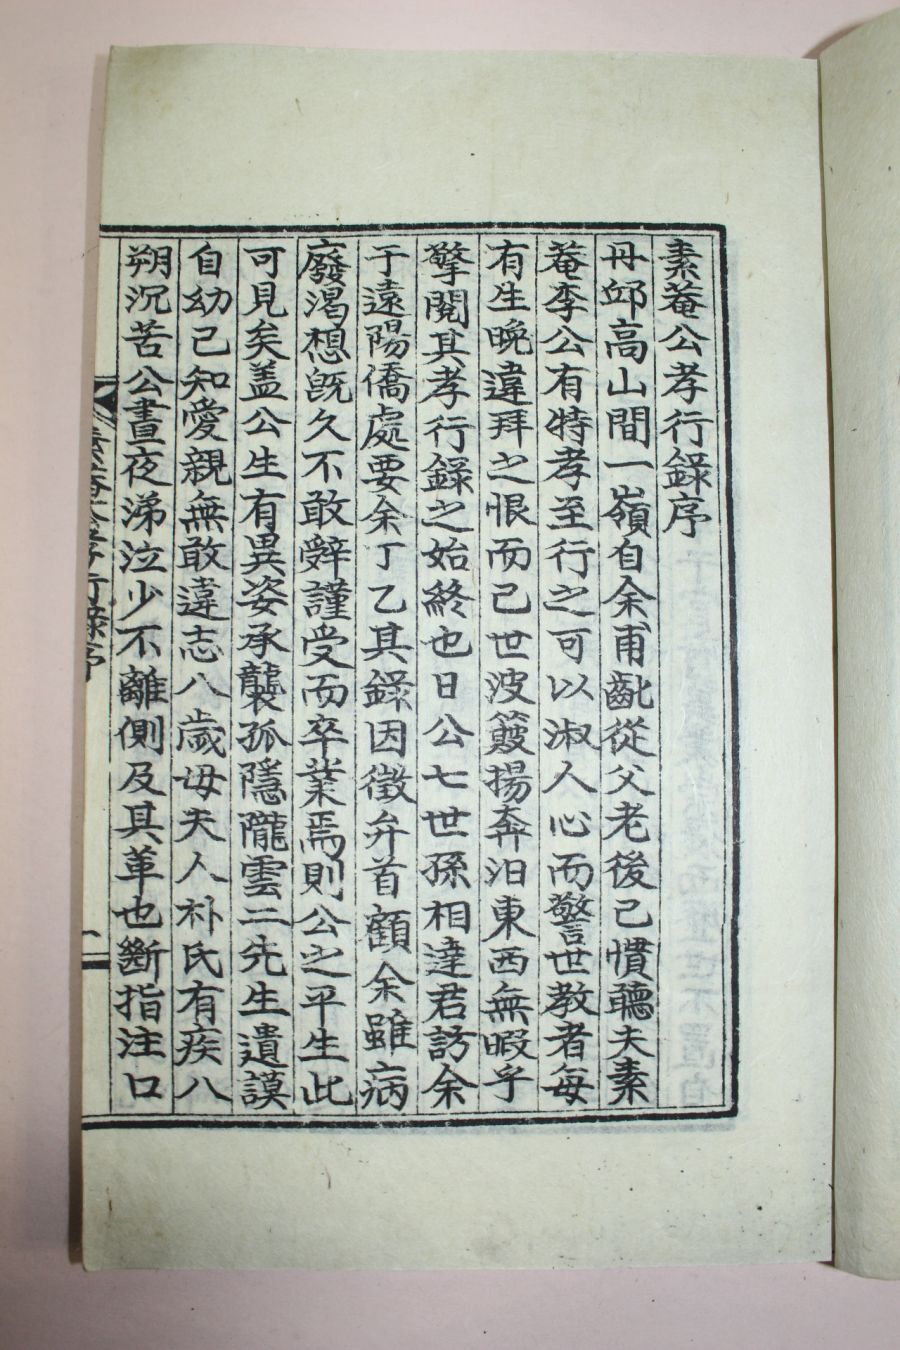 素菴公孝行錄序
丹邱高山間一嶺自余甫齔從父老後已慣聽夫素
菴李公有特孝至行之可以淑人心而警世教者每
有生晩違拜之恨而已世波簸揚奔汨東西無暇乎
擎閱其孝行錄之始終也日公七世孫相達君訪余
于遠陽僑處要余丁乙其錄因徵弁首顧余雖病
廢渴想旣久不敢辭謹受而卒業焉則公之平生此
可見矣盖公生有異姿承襲孤隱隴雲二先生遺謨
自幼已知愛親無敢違志八歲母夫人朴氏有疾八
朔沉苦公晝夜涕泣少不離側及其革也斷指注口
素菴公孝行錄序
一